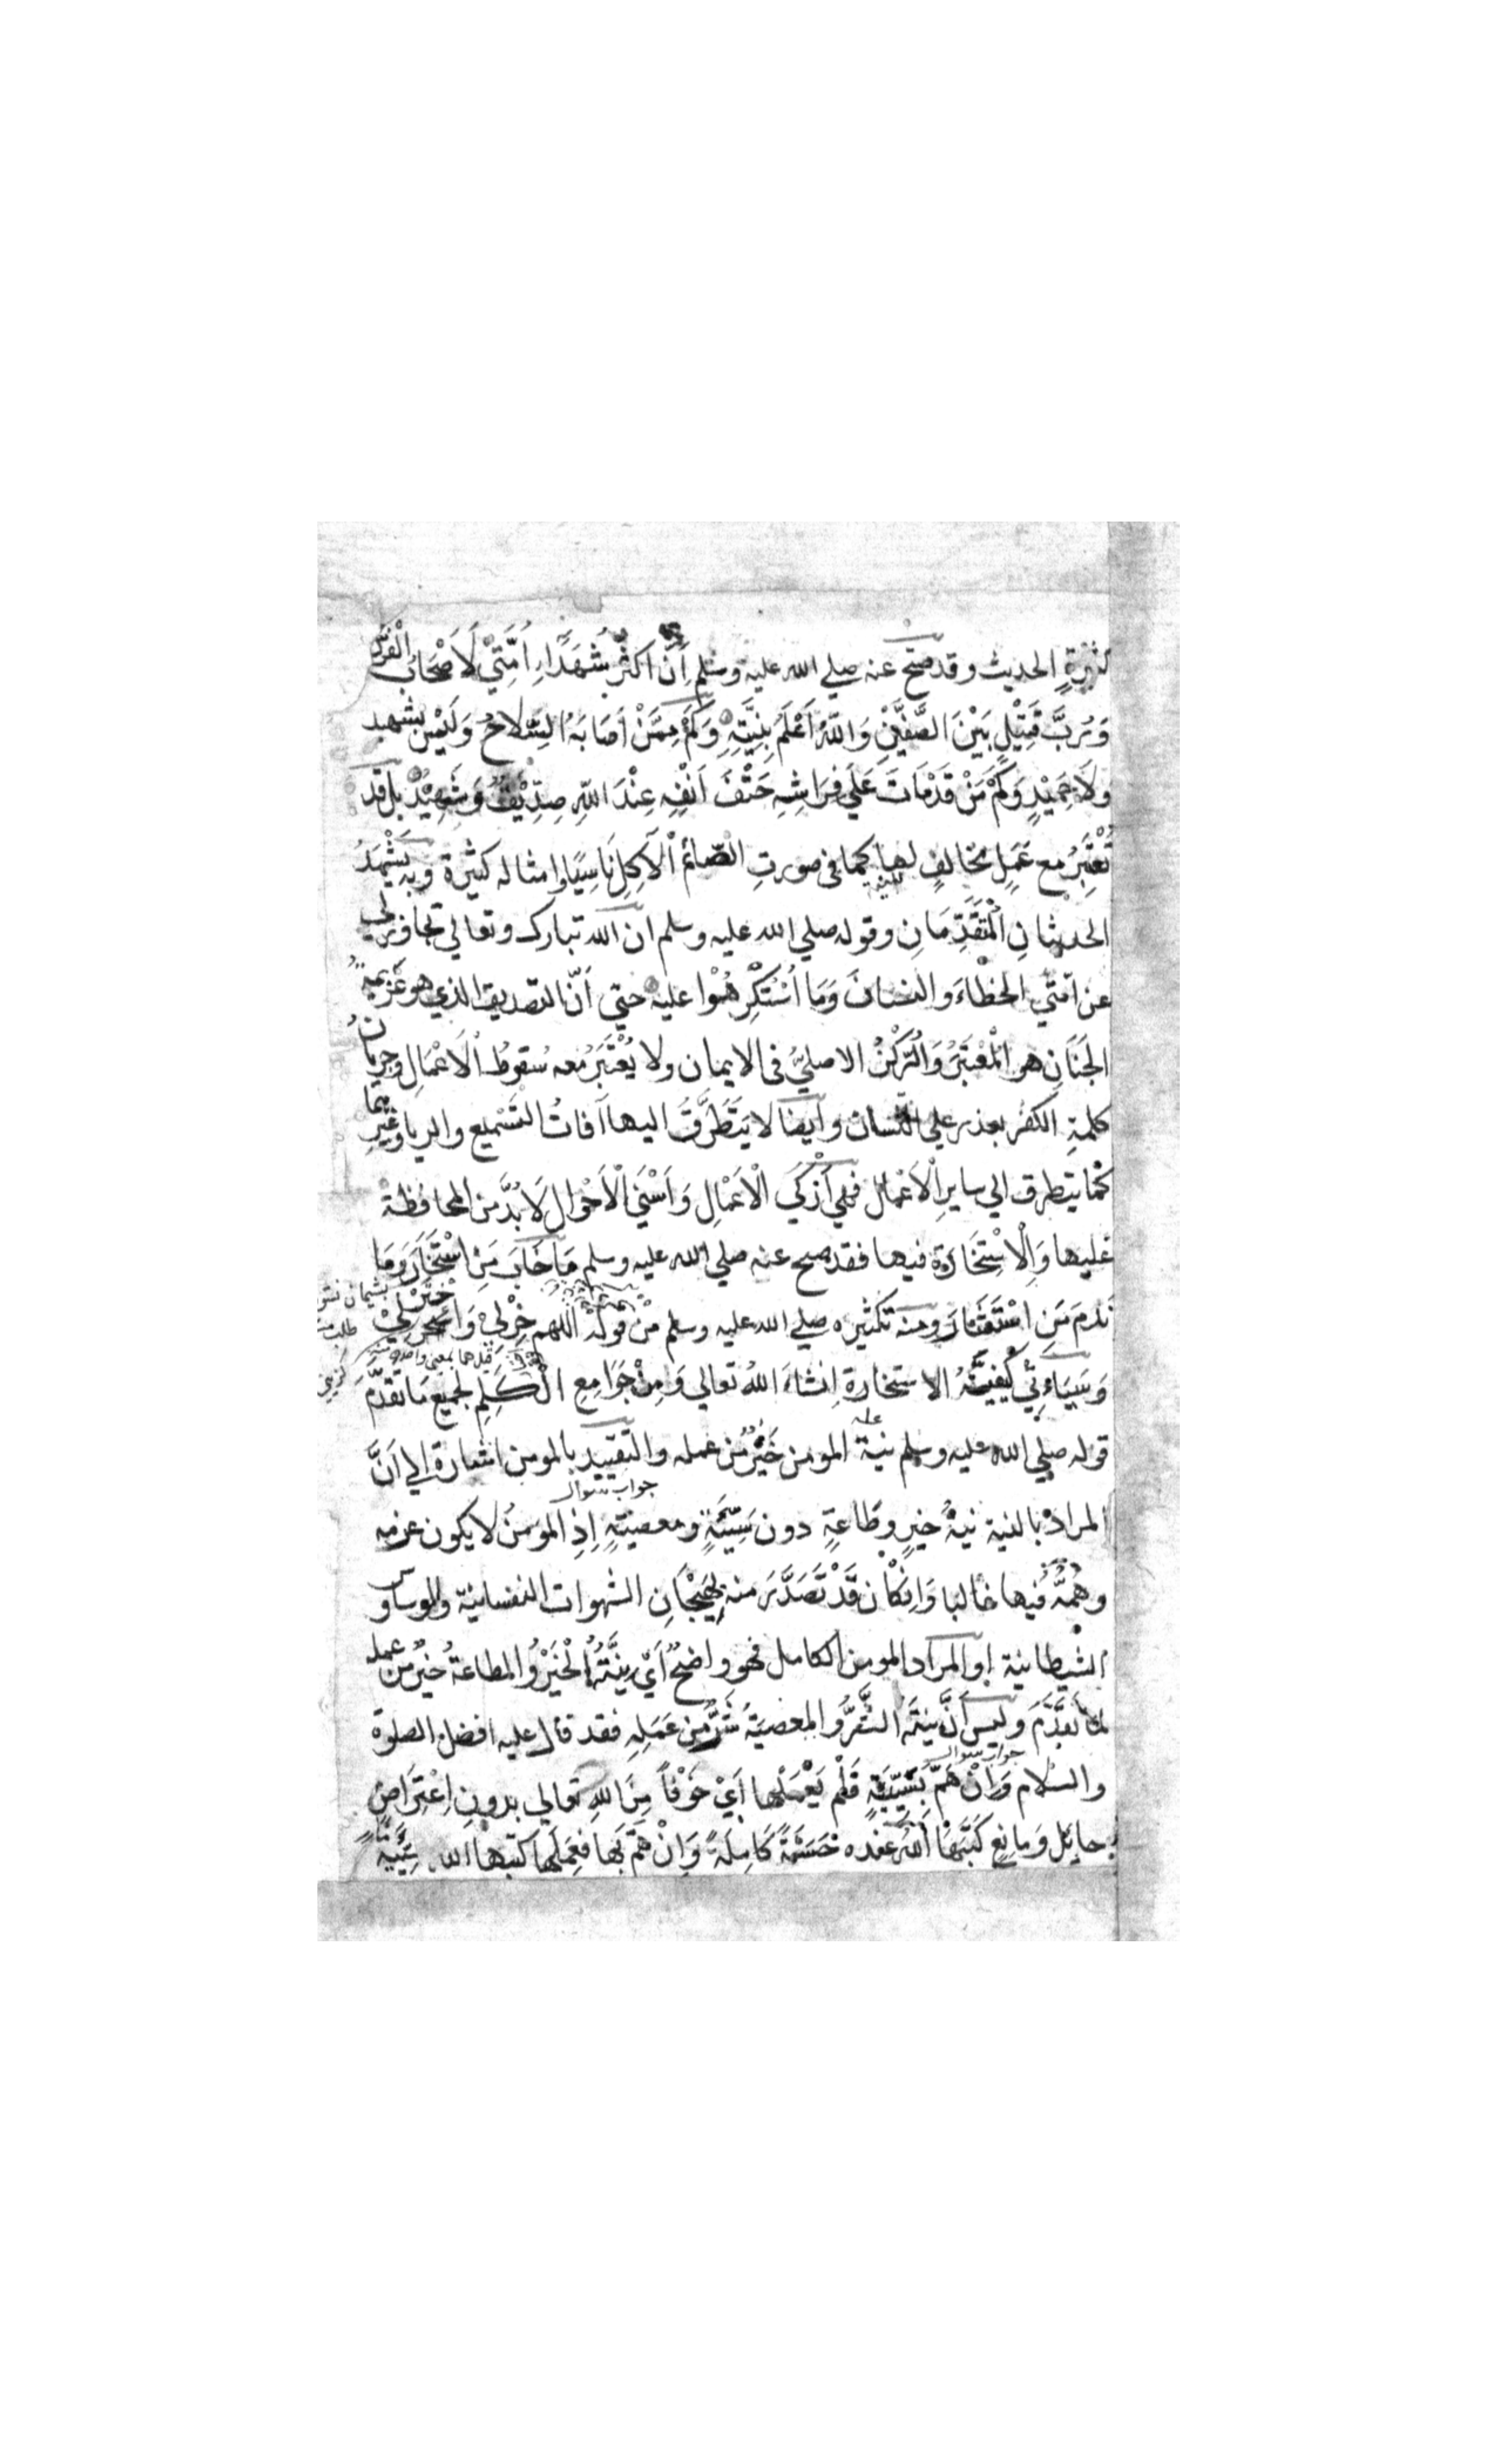 كثيرةٍ الحديث وقد صحّ عنه صلي الله عليه وسلم اَنَّ اكثرَ شُهَدَاءِ اُمَّتِيْ لَاَصْحَابُ الْفُرُشِ
وَرُبَّ قَتِيْلٍ بَيْنَ الصَّفَّيْنِ وَاللّٰهُ اَعْلَمُ بِنِيَّتِهٖ وَكَمْ مِمَّنْ اَصَابَهُ السِّلَاحُ وَلَيْسَ بشهيد
وَلَا حَمِيْدٍ وَكَمْ مَنْ قَدْ مَاتَ عَلَي فِرَاشِهٖ حَتْفَ اَنْفِهٖ عِنْدَ اللّٰهِ صِدِّيْقٌ وَشَهِيْدٌ بل قد
تُعْتَبَرُ مع عَمَلٍ مخالفٍ لها كما في صورتِ الصّائم الْاٰكِلِ نَاسِيًا وامثاله كثيرة وبه يَشْهَدُ
الحديثانِ الْمُتَقَدِّمَانِ وقوله صلي الله عليه وسلم ان الله تبارك وتعالي تجاوز لي
عن امتي الخطاءَ والنسيانَ وَمَا اُسْتُكْرِهُوْا عليه حتي اَنّ التصديق الذي هو عَزِيمةُ
الجَنَانِ هو الْمُعْتَبَرُ وَالرُّكْنُ الاصليُّ في الايمان ولا يُعْتَبَرُ معه سُقوطُ الْاَعْمَالِ وجريانُ
كلمةِ الكفر بعذر علي اللسان وايضا لا يَتَطَرَّقُ اليها آفاتُ التَّسْمِيع والريا وغيرِهما
كما يتطرق الي سايرِ الْاَعْمَالِ فهي اَزْكَي الْاَعْمَالِ وَاَسْنَي الْاَحْوَالِ لَا بُدَّ من المحافظةْ
عليها وَالْاِسْتِخَارَةِ فيها فقد صح عنه صلي الله عليه وسلم مَا خَابَ مَنِ اسْتَخَارَ وَمَا
نَدِمَ مَنِ اسْتَشَارَ ومنه تكثيره صلي الله عليه وسلم مِنْ قوله اللهم خِرْلِيْ وَاخْتَرْ لِيْ
قيل هما بمعني واحد
وَسَيَاءْتِيْ كَيْفِيَّةُ الاستخارة اِنشاءَ اللهُ تعالي وَمِنْ جَوَامِعِ الْكَلِمِ لجميع مَا تقدَّمَ
قوله صلي الله عليه وسلم نية المومن خَيْرٌ مّن عمله والتقييد بالمومن اشارة الي اَنَّ
جواب سوال
المرادَ بالنية نيةُ خيرٍ وطَاعةٍ دون سَيِّئَةٍ ومعصيةٍ اِذِ المومنُ لا يكون عزمه
وهَمُّهُ فيها غالبا وَاِنكَان قَدْ تَصَدَّرَ منه لِهَيْجَانِ الشهوات النفسانيّة والوساوس
الشيطانية او المراد المومن الكامل فهو واضحٌ اَيْ نِيَّتُهُ الْخَيْرُ والطاعةُ خيرٌ من عمله
لما تقدَّمَ وليس اَنَّ نيتَهُ الشَّرُّ والمعصيةُ شَرٌّ مِّن عَمَلِهٖ فقد قال عليه افضل الصلوة
جواب سوال
والسلام وَاِنْ هَمَّ بِسَيِّئَةٍ فَلَمْ يَعْمَلْها اَيْ خَوْفاً مِنَ اللهِ تعالي بدونِ اِعْتِرَاضِ
حايلٍ وَمانِعٍ كَتَبَهَا اللهُ عنده حَسَنَةً كَامِلَةً وَاِنْ هَمَّ بِهَا فعَمِلَها كتبها الله سَيِّئَةً